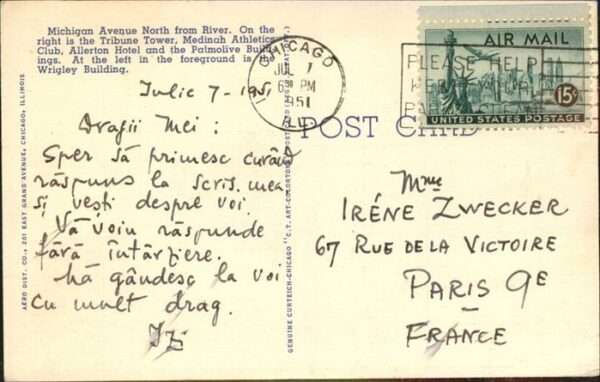 Michigan Avenue North from River. On the
right is the Tribune Tower, Medinah Athletic
Club, Allerton Hotel and the Palmolive Build-
ings. At the left in the foreground is the
Wrigley Building.
Iulie 7 - 1951
Dragii Mei :
Sper să primesc curând
răspuns la scris. mea
și vești despre voi.
Vă voiu răspunde
fără întârziere.
Mă gândesc la voi
cu mult drag.
Izi
AERO DIST. CO.: 201 EAST GRAND AVENUE, CHICAGO, ILLINOIS
GENUINE CURTEICH-CHICAGO "C.T. ART-COLORTONE" POST CARD
CHICAGO
JUL 7
6 30 PM
1951
ILL.
PLEASE HELP
POST CARD
AIR MAIL
15¢
UNITED STATES POSTAGE
Mme
IRÉNE ZWECKER
67 RUE DE LA VICTOIRE
PARIS 9E
FRANCE